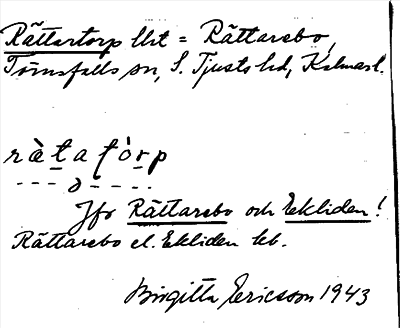 Rättartorp lht = Rättarebo,
Törnsfalls sn, S. Tjusts hd, Kalmar l.
ràtatòrp
Jfr Rättarebo och Ekliden!
Rättarebo el. Ekliden hb.
Birgitta Ericsson 1943